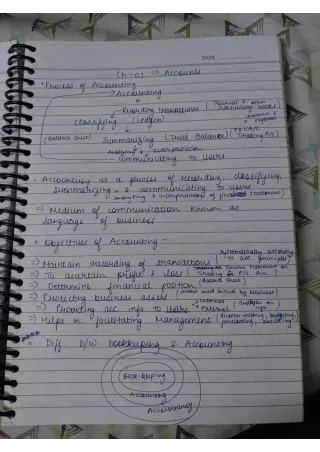 DATE
Ch-01 => Accounts
• Process of Accounting
→ Accounting
Recording transactions (Journal & other subsidiary books)
Classifying (Ledger)
(Balance Sheet) Summarizing (Trial Balance) (Trading A/c)
Analysing & interpretation
communicating to users
• Accounting is a process of recording, classifying,
summarizing, & communicating to users
analysing & interpretation of financial statement
=> Medium of communication known as
language of business
• Objectives of Accounting
=> Maintain recording of transactions (systematically according to acc principle)
=> To ascertain profit & loss (Income Statement or Trading A/c P/L A/c)
=> Determine financial position (Balance Sheet)
=> Protecting business assets (owned by business)
=> Providing acc info to users → Internal External
=> Helps in facilitating Management (decision-making, budgeting, forecasting,
• Diff b/w bookkeeping & Accounting
Book-keeping
Accounting
Accountancy